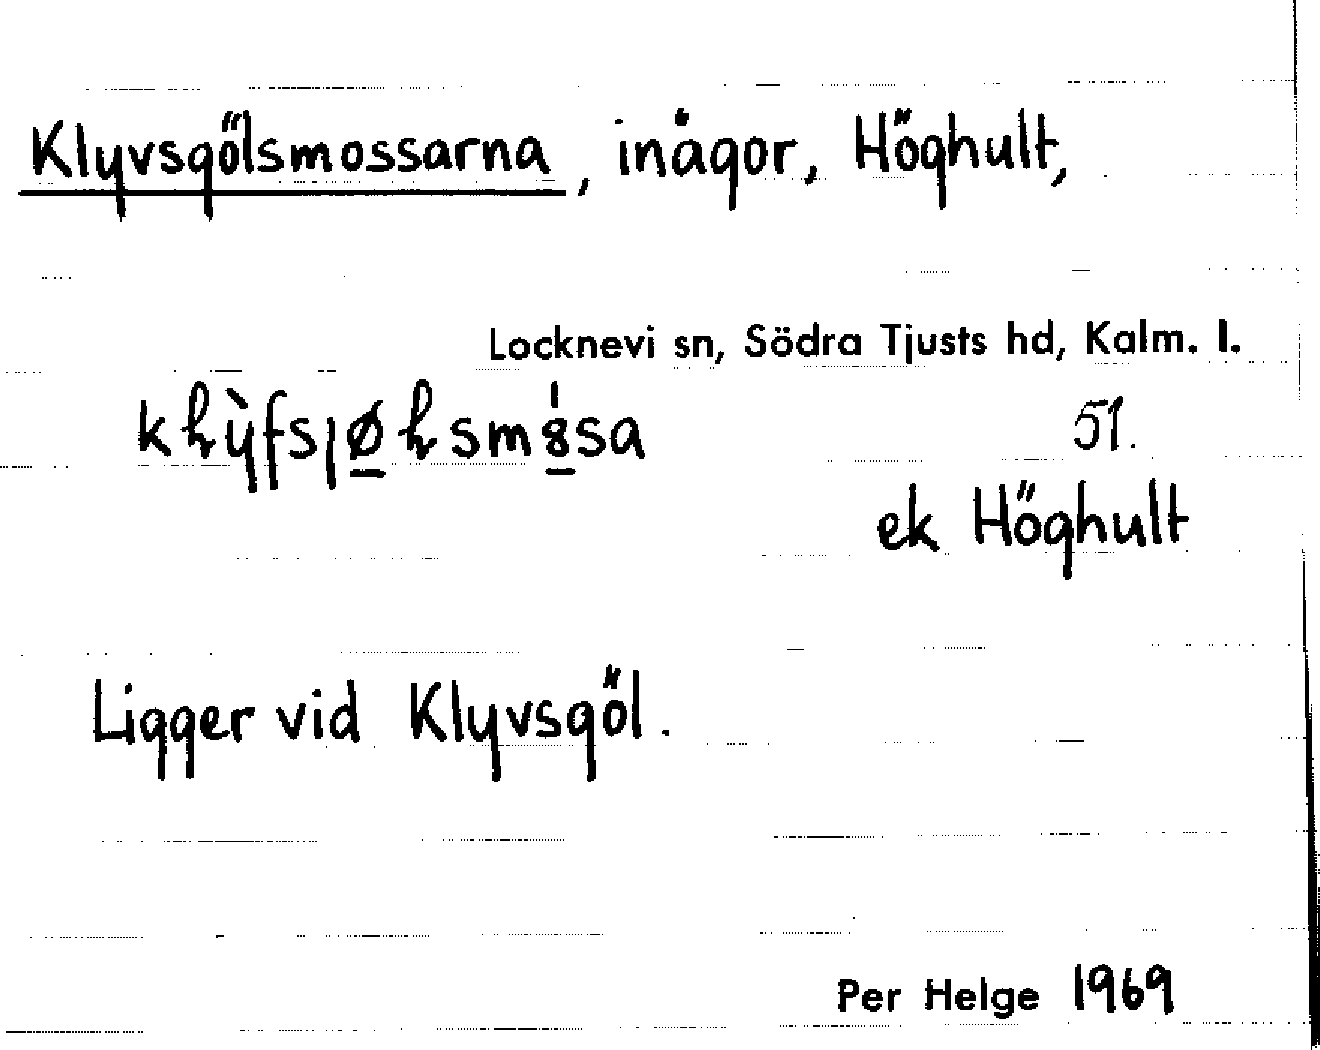 Klyvsgölsmossarna, inågor, Höghult,
Locknevi sn, Södra Tjusts hd, Kalm. l.
51.
ek Höghult
Ligger vid Klyvsgöl.
Per Helge 1969